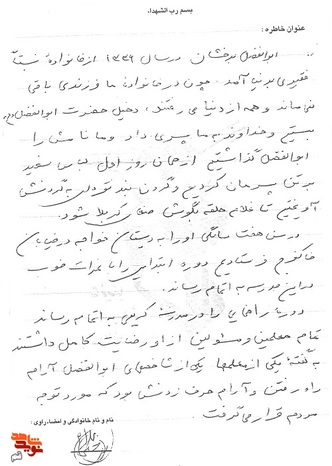 بسم رب الشهداء
عنوان خاطره:
ابوالفضل بدخشان در سال ۱۳۳۶ از خانوادهٔ نسبتاً
فقیری به دنیا آمد. چون در خانوادهٔ ما فرزندی باقی
نمی ماند و همه از دنیا می رفتند، دخیل حضرت ابوالفضل
بستیم و خداوند به ما پسری داد و ما نامش را
ابوالفضل گذاشتیم از همان روز اول لباس سفید
بر تن پسرمان کردیم و گردن بند به گردنش
آویختیم تا غلام حلقه بگوش کربلا شود.
در سن هفت سالگی او را به دبستان خواجه در خیابان
فرستادیم دوره ابتدایی را با نمرات خوب
در این مدرسه به اتمام رساند.
دورهٔ راهنمایی را در مدرسه به اتمام رساند
تمام معلمین و مسئولین از او رضایت کامل داشتند
به گفتهٔ یکی از معلمها یکی از شاخصهای ابوالفضل آرام
راه رفتن و آرام حرف زدنش بود که مورد توجه
مردم قرار می گرفت
نام و نام خانوادگی و امضاء راوی:
نوید شاهد